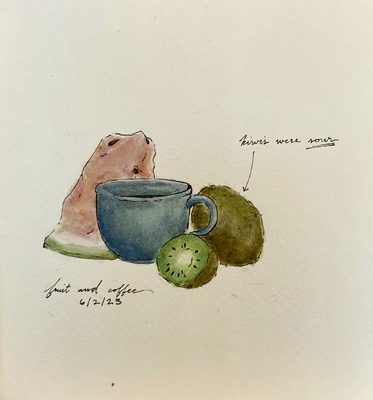 kiwis were sour
fruit and coffee
6/2/23